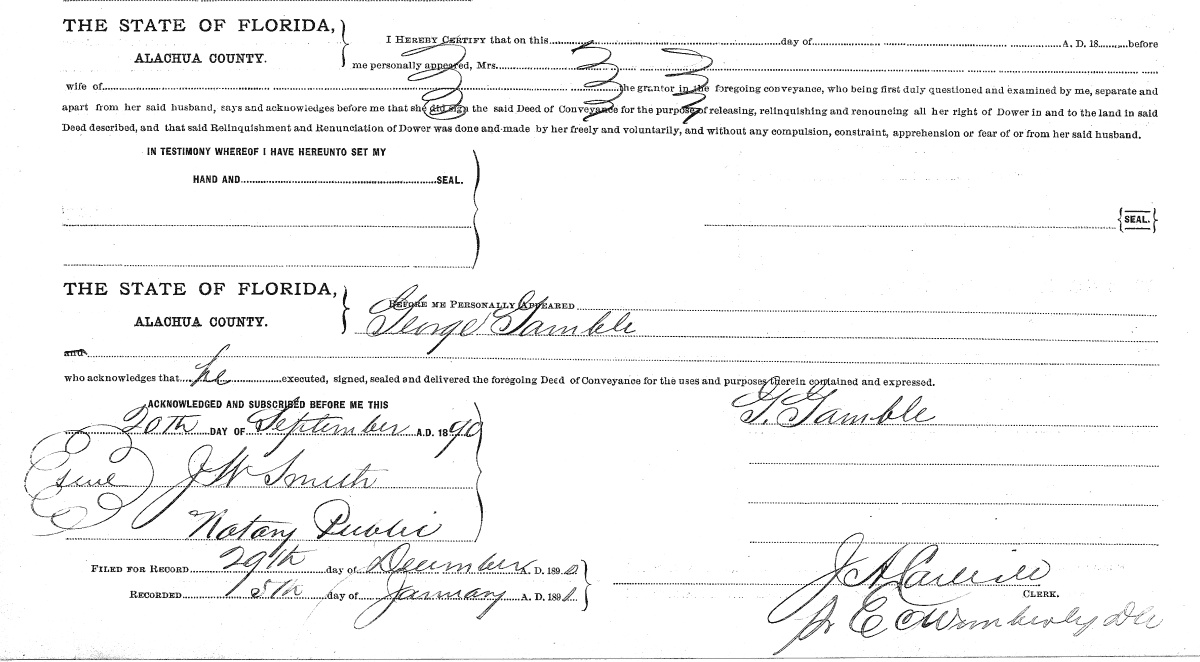 THE STATE OF FLORIDA,
ALACHUA COUNTY.
I HEREBY CERTIFY that on this day of A. D. 18 before
me personally appeared, Mrs.
wife of the grantor in the foregoing conveyance, who being first duly questioned and examined by me, separate and
apart from her said husband, says and acknowledges before me that she did sign the said Deed of Conveyance for the purpose of releasing, relinquishing and renouncing all her right of Dower in and to the land in said
Deed described, and that said Relinquishment and Renunciation of Dower was done and made by her freely and voluntarily, and without any compulsion, constraint, apprehension or fear of or from her said husband.
IN TESTIMONY WHEREOF I HAVE HEREUNTO SET MY
HAND AND SEAL.
SEAL.
THE STATE OF FLORIDA,
ALACHUA COUNTY.
BEFORE ME PERSONALLY APPEARED
George Gamble
and
who acknowledges that he executed, signed, sealed and delivered the foregoing Deed of Conveyance for the uses and purposes therein contained and expressed.
ACKNOWLEDGED AND SUBSCRIBED BEFORE ME THIS
20th DAY OF September A.D. 1890
G. Gamble
J W Smith
Notary Public
FILED FOR RECORD 29th day of December A. D. 1890
RECORDED 5th day of January A. D. 1891
J A Carlisle
CLERK.
E C Wimberly DC